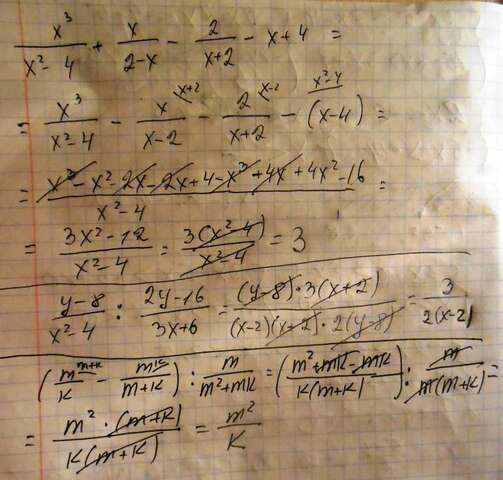 x³/(x²-4) + x/(2-x) - 2/(x+2) - x+4 =
= x³/(x²-4) - x/(x-2) ^(x+2) - 2/(x+2) ^(x-2) - (x-4) ^(x²-4) =
= (x³ - x² - 2x - 2x + 4 - x³ + 4x + 4x² - 16)/(x²-4) =
= (3x² - 12)/(x²-4) = 3(x²-4)/(x²-4) = 3
(y-8)/(x²-4) : (2y-16)/(3x+6) = ((y-8)·3(x+2))/((x-2)(x+2)·2(y-8)) = 3/(2(x-2))
(m/k ^(m+k) - mk/(m+k)) : m/(m²+mk) = ((m²+mk-mk)/(k(m+k))) : m/(m(m+k)) =
= (m²·(m+k))/(k(m+k)) = m²/k